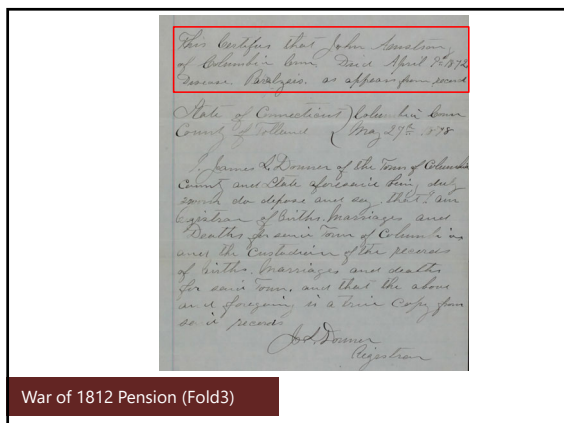 This Certifies that John Armstrong
of Columbia Conn Died April 9th 1872
Disease. Paralysis. as appears from record
State of Connecticut } Columbia Conn
County of Tolland { May 27th 1878
I, James L. Downer of the Town of Columbia
County and State aforesaid being duly
sworn do depose and say, that I am
Registrar of Births. Marriages and
Deaths for said Town of Columbia
and the Custodian of the records
of births. Marriages and deaths
for said Town. and that the above
and foregoing is a true Copy from
said records
J. L. Downer
Registrar
War of 1812 Pension (Fold3)